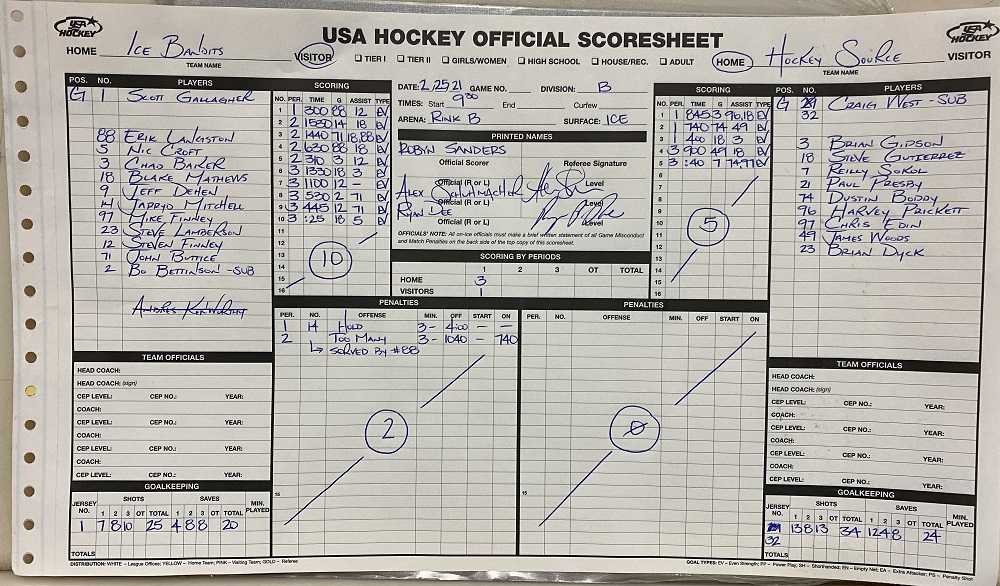 USA HOCKEY OFFICIAL SCORESHEET
USA HOCKEY
USA HOCKEY
HOME Ice Bandits VISITOR
TEAM NAME
☐ TIER I ☐ TIER II ☐ GIRLS/WOMEN ☐ HIGH SCHOOL ☐ HOUSE/REC. ☐ ADULT
HOME Hockey Source VISITOR
TEAM NAME
POS. NO. PLAYERS
G 1 Scott Gallagher
88 Erik Langston
5 Nic Croft
3 Chad Baker
18 Blake Mathews
9 Jeff Dehen
14 Jarryd Mitchell
97 Mike Finney
23 Steve Lamberson
12 Steven Finney
71 John Buttice
2 Bo Bettinson -SUB
SCORING
NO. PER. TIME G ASSIST TYPE
1 1 300 88 12 EV
2 2 1530 14 18 EV
3 2 1440 71 18,88 EV
4 2 1030 88 18 EV
5 2 310 3 12 EV
6 3 1330 18 3 EV
7 3 1100 12 - EV
8 3 530 2 71 EV
9 3 445 12 71 EV
10 3 :25 18 5 EV
11
12
13
14
15
16
10
DATE: 2/25/21 GAME NO. DIVISION: B
TIMES: Start 9:30 End Curfew
ARENA: Rink B SURFACE: ICE
PRINTED NAMES
Robyn Sanders
Official Scorer Referee Signature
Alex Schumacher
Official (R or L) Level
Ryan Dee
Official (R or L) Level
Official (R or L) Level
OFFICIALS' NOTE: All on-ice officials must make a brief written statement of all Game Misconduct and Match Penalties on the back side of the top copy of this scoresheet.
SCORING BY PERIODS
1 2 3 OT TOTAL
HOME 3
VISITORS 1
SCORING
NO. PER. TIME G ASSIST TYPE
1 1 845 3 96,18 EV
2 1 740 74 49 EV
3 1 400 18 3 EV
4 3 900 49 18 EV
5 3 :40 7 74,97 EV
6
7
8
9
10
11
12
13
14
15
16
5
POS. NO. PLAYERS
G 32 Craig West -SUB
3 Brian Gipson
18 Steve Gutierrez
7 Reilly Sokol
21 Paul Presby
74 Dustin Boddy
96 Harvey Prickett
97 Chris Edin
49 James Woods
23 Brian Dyck
PENALTIES
PER. NO. OFFENSE MIN. OFF START ON
1 14 Hold 3- 4:00 - -
2 Too Many 3- 1040 - 740
↳ Served by #88
2
PENALTIES
PER. NO. OFFENSE MIN. OFF START ON
0
TEAM OFFICIALS
HEAD COACH:
HEAD COACH: (sign)
CEP LEVEL: CEP NO.: YEAR:
COACH:
CEP LEVEL: CEP NO.: YEAR:
COACH:
CEP LEVEL: CEP NO.: YEAR:
COACH:
CEP LEVEL: CEP NO.: YEAR:
GOALKEEPING
JERSEY NO. SHOTS SAVES MIN. PLAYED
1 2 3 OT TOTAL 1 2 3 OT TOTAL
1 7 8 10 25 4 8 8 20
TOTALS
TEAM OFFICIALS
HEAD COACH:
HEAD COACH: (sign)
CEP LEVEL: CEP NO.: YEAR:
COACH:
CEP LEVEL: CEP NO.: YEAR:
COACH:
CEP LEVEL: CEP NO.: YEAR:
COACH:
CEP LEVEL: CEP NO.: YEAR:
GOALKEEPING
JERSEY NO. SHOTS SAVES MIN. PLAYED
1 2 3 OT TOTAL 1 2 3 OT TOTAL
32 13 8 13 34 12 4 8 24
TOTALS
DISTRIBUTION: WHITE – League Offices; YELLOW – Home Team; PINK – Visiting Team; GOLD – Referee
GOAL TYPES: EV – Even Strength; PP – Power Play; SH – Shorthanded; EN – Empty Net; EA – Extra Attacker; PS – Penalty Shot